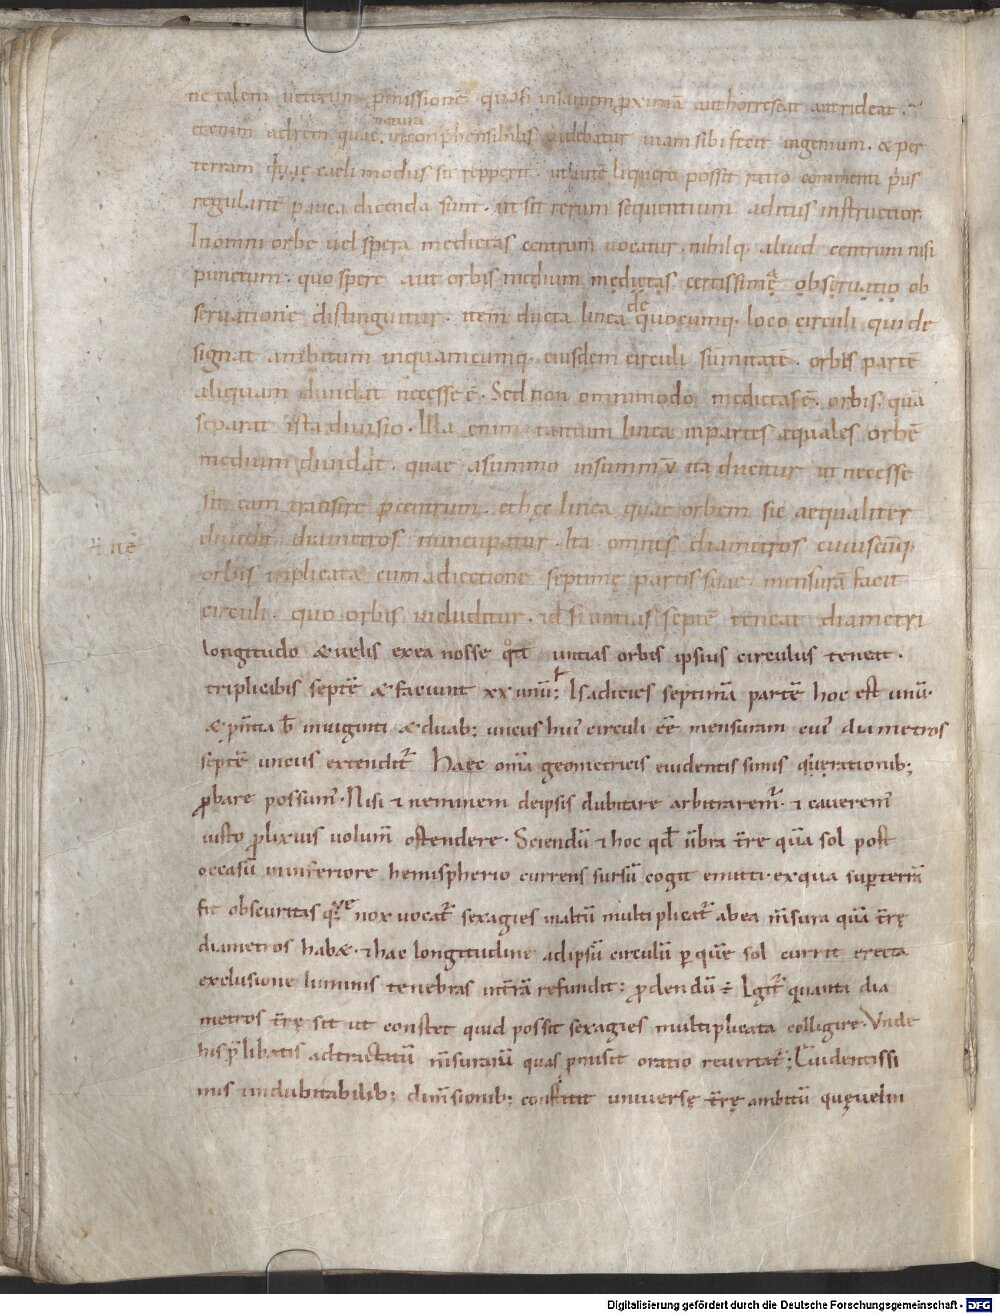 ne talem ueterum ꝓmissionē quasi insaniam ꝓximā aut horrescat aut rideat.
etenim ad rem quae natura incomp̄hensibilis uidebatur uiam sibi fecit ingenium. & per
terram q̄ qualis caeli modus sit repperit. ut aute liquere possit ratio commenti p̄us
regularit̄ pauca dicenda sunt. ut sit rerum sequentium aditus instructior.
In omni orbe uel spera medietas centrum uocatur. nihilq. aliud centrum nisi
punctum. quo spere aut orbis medium medietas certissime obseruatio ob
seruatione distinguitur. item ducta linea de quocumq. loco circuli qui de
signat ambitum in quamcumq. eiusdem circuli sūmitatē. orbis partē
aliquam diuidat necesse ē. Sed non omnimodo medietas ē. orbis. qua
separat ista diuisio. Illa enim tantum linea in partes aequales orbē
medium diuidit. quae a summo in summū ita ducitur ut necesse
sit eam transire ꝑ centrum. et hęc linea quae orbem sic aequaliter
diuidit diametros nuncupatur. Ita omnis diametros cuiuscūq;
orbis triplicata cum adiectione septimę partis suae. mensurā facit
circuli. quo orbis includitur. id si uncias septē teneat diametri
longitudo & uelis ex ea nosse qot uncias orbis ipsius circulus teneat.
triplicabis septē & faciunt xx unū; Is adicies septimā partē hoc est unū.
& p̄ntia b̄ in uiginti & duab; unciis hui' circuli eē mensuram cui' diametros
septē unciis extendit̄. Haec om̄ia geometricis euidentissimis quę rationib;
ꝓbare possum'. Nisi & neminem de ipsis dubitare arbitrarem̄. & cauerem'
iusto ꝓlixius uolum̄ ostendere. Sciendū & hoc qd̄ ūbra t̄re quā sol post
occasū in inferiore hemispherio currens sursū cogit emitti. ex qua sup̄ terrā
fit obscuritas quę nox uocat̄. sexagies in altū multiplicat̄ ab ea m̄sura quā t̄rę
diametros hab&. & hac longitudine ad ipsū circulū ꝑ quē sol currit erecta
exclusione luminis tenebras in t̄rā refundit; ꝓdendū ÷ Igit̄ quanta dia
metros t̄rę sit ut constet quid possit sexagies multiplicata colligere. Vnde
his p̄libatis ad tractatū m̄surarū quas p̄misit oratio reuertat̄; Euidentissi
mis indubitabilib; dim̄sionib; constitit uniuersę t̄rę ambitū quę uelin